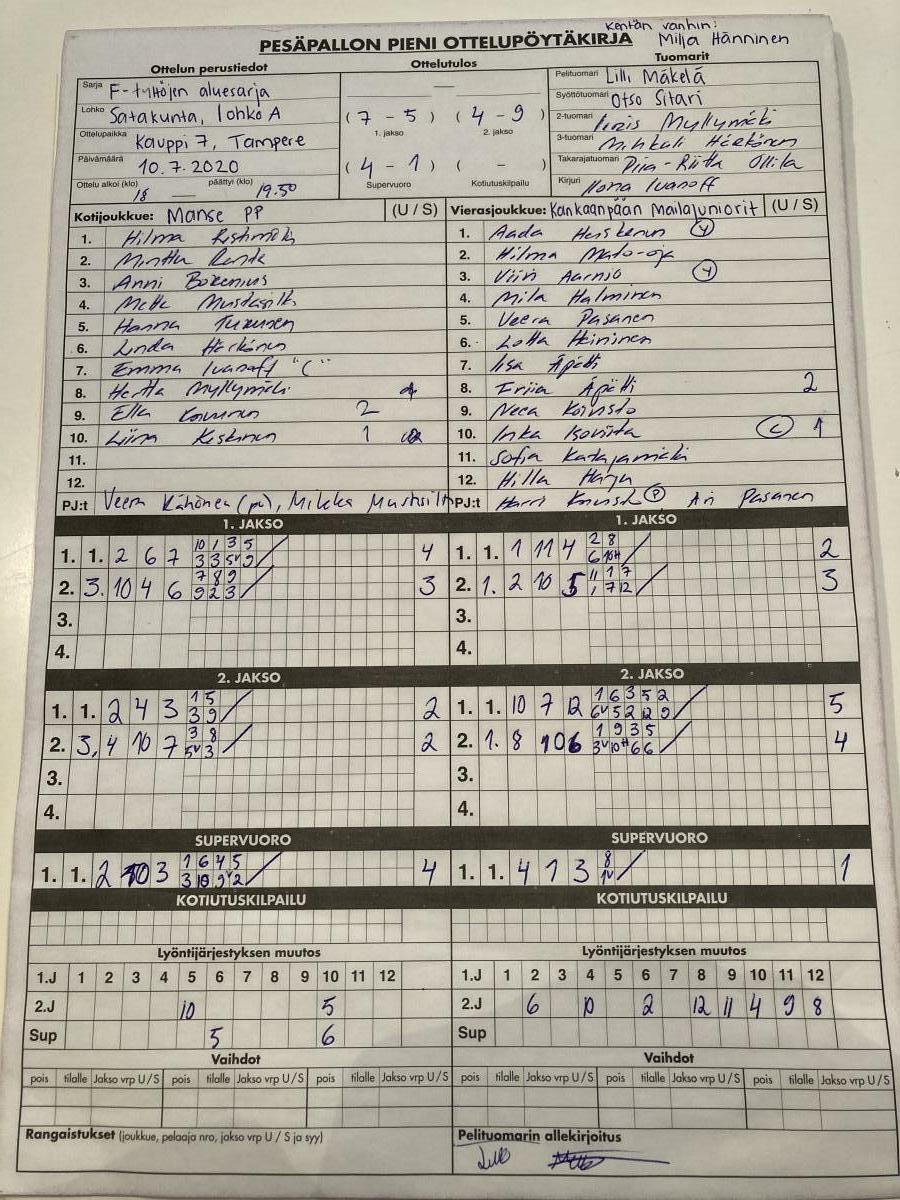 Kentän vanhin:
PESÄPALLON PIENI OTTELUPÖYTÄKIRJA Milja Hänninen
Ottelun perustiedot Ottelutulos Tuomarit
Sarja F-tyttöjen aluesarja — Pelituomari Lilli Mäkelä
Lohko Satakunta, lohko A (7 - 5) (4 - 9) Syöttötuomari Otso Sitari
1. jakso 2. jakso 2-tuomari Iiris Myllymäki
Ottelupaikka Kauppi 7, Tampere 3-tuomari Mihkali Härkönen
Päivämäärä 10.7.2020 (4 - 1) ( - ) Takarajatuomari Piia-Riitta Ollila
Ottelu alkoi (klo) 18 — päättyi (klo) 19.50 Supervuoro Kotiutuskilpailu Kirjuri Ilona Ivanoff
Kotijoukkue: Manse PP (U / S) Vierasjoukkue: Kankaanpään Mailajuniorit (U / S)
1. Hilma 1. Aada Y
2. Minttu 2. Hilma Mato-oja
3. Anni 3. Viivi Aarnio Y
4. Mette Mustasilti 4. Mila Halminen
5. Hanna Turunen 5. Veera Pasanen
6. Linda Härkönen 6. Lotta Heininen
7. Emma Ivanoff "C" 7. Iisa Äpätti
8. Hertta Myllymäki 8. Äpätti 2
9. Ella 2 9. Neea Koivisto
10. Liina Keskinen 1 10. Inka C 1
11. 11. Sofia Katajamäki
12. 12. Hilla Harju
PJ:t Veera Kähönen (pj), Mikka Mustasilta PJ:t Harri P Ari Pasanen
1. JAKSO 1. JAKSO
10 1 3 5 2 8
1. 1. 2 6 7 3 3 5v 9 / 4 1. 1. 1 11 4 6 10H / 2
7 8 9 11 1 7
2. 3. 10 4 6 9 2 3 / 3 2. 1. 2 10 5 1 7 12 / 3
3. 3.
4. 4.
2. JAKSO 2. JAKSO
1 5 1 6 3 5 2
1. 1. 2 4 3 3 9 / 2 1. 1. 10 7 12 6v 5 2 12 9 / 5
3 8 1 9 3 5
2. 3, 4 10 7 5v 3 / 2 2. 1. 8 10 6 3v 10H 6 6 / 4
3. 3.
4. 4.
SUPERVUORO SUPERVUORO
1 6 4 5 8
1. 1. 2 10 3 3 10 9v 2 / 4 1. 1. 4 1 3 1v / 1
KOTIUTUSKILPAILU KOTIUTUSKILPAILU
Lyöntijärjestyksen muutos Lyöntijärjestyksen muutos
1.J 1 2 3 4 5 6 7 8 9 10 11 12 1.J 1 2 3 4 5 6 7 8 9 10 11 12
2.J 10 5 2.J 6 10 2 12 11 4 9 8
Sup 5 6 Sup
Vaihdot Vaihdot
pois tilalle Jakso vrp U / S pois tilalle Jakso vrp U / S pois tilalle Jakso vrp U / S pois tilalle Jakso vrp U / S pois tilalle Jakso vrp U / S pois tilalle Jakso vrp U / S
Rangaistukset (joukkue, pelaaja nro, jakso vrp U / S ja syy) Pelituomarin allekirjoitus